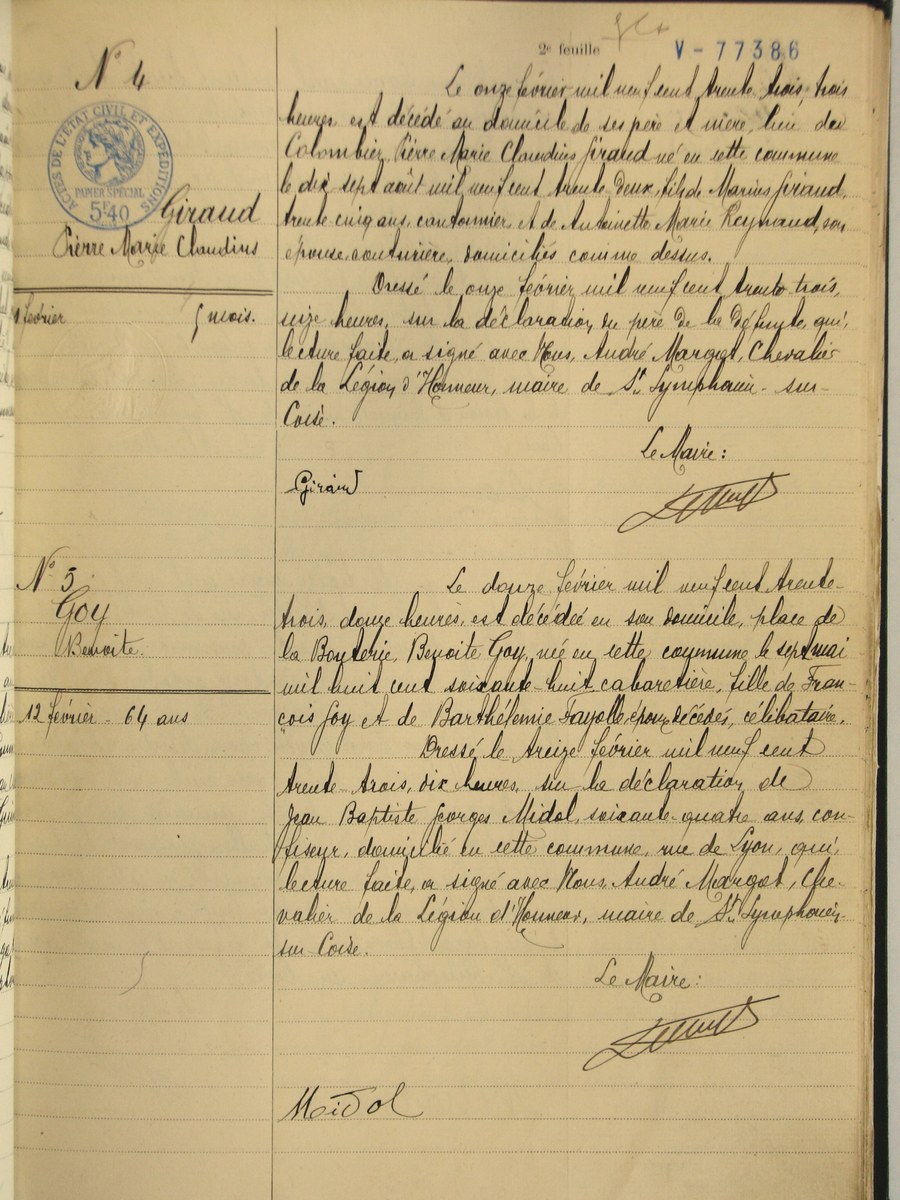 2e feuille
V-77386
N° 4
ACTES DE L'ETAT CIVIL ET EXPEDITIONS
PAPIER SPECIAL
5F40
GIRAUD
Pierre Marie Claudius
février
5 mois.
Le onze février mil neuf cent trente trois, trois
heures est décédé au domicile de ses père et mère, lieu du
Colombier, Pierre Marie Claudius Giraud né en cette commune
le dix sept août mil neuf cent trente deux, fils de Marius Giraud,
trente cinq ans, cantonnier et de Antoinette Marie Reynaud, son
épouse couturière, domiciliés comme dessus.
Dressé le onze février mil neuf cent trente-trois,
seize heures, sur la déclaration du père de le défunte, qui,
lecture faite, a signé avec Nous, André Margot, Chevalier
de la Légion d'Honneur, maire de St Symphorien-sur-
Coise.
Le Maire:
Giraud
N° 5
Goy
Benoite.
12 février - 64 ans
Le douze février mil neuf cent trente-
trois, douze heures, est décédée en son domicile, place de
la Bouterie, Benoite Goy, née en cette commune le sept mai
mil huit cent soixante-huit cabaretière, fille de Fran-
çois Goy et de Barthélemie Fayolle époux décédés, célibataire.
Dressé le treize février mil neuf cent
trente trois, dix heures, sur la déclaration de
Jean Baptiste Georges Midol, soixante-quatre ans, con-
fiseur, domicilié en cette commune, rue de Lyon, qui,
lecture faite, a signé avec Nous, André Margot, Che-
valier de la Légion d'Honneur, maire de St Symphorien-
sur Coise.
Le Maire:
Midol